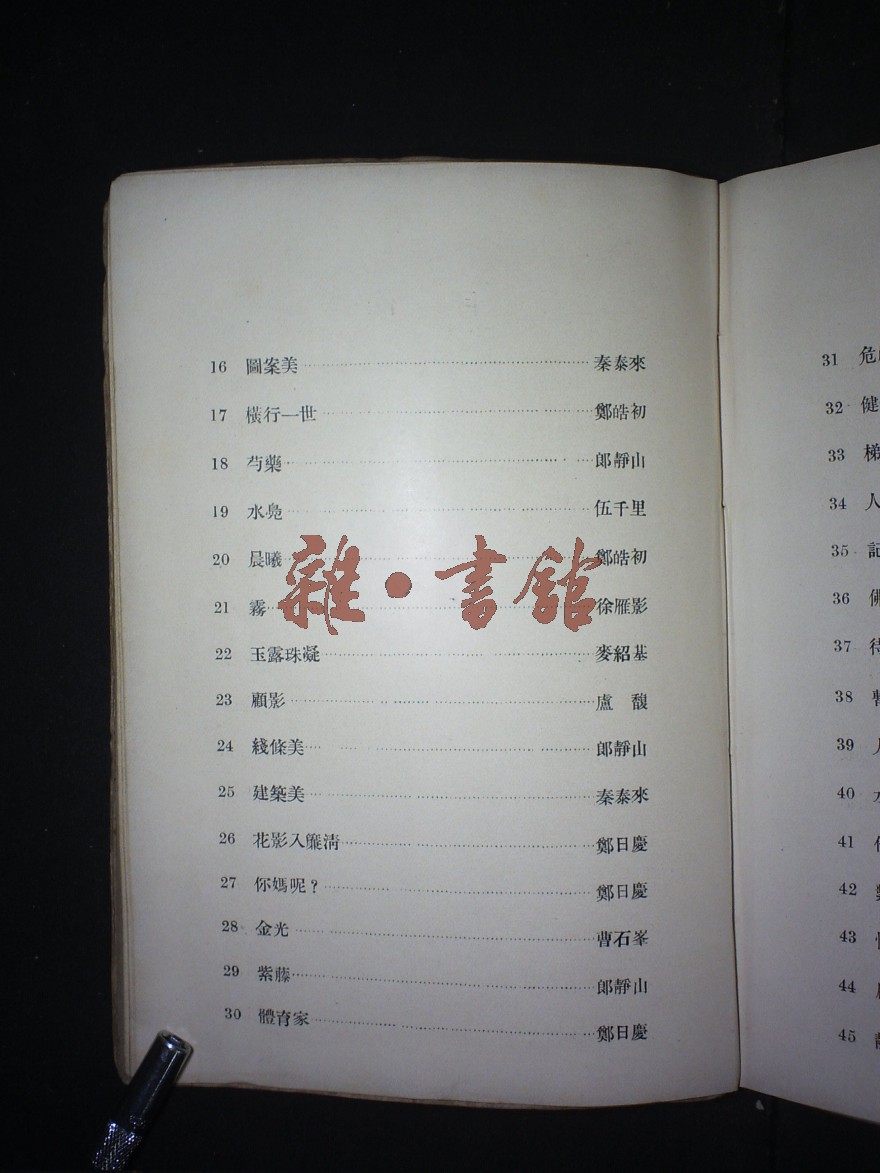 16 圖案美 秦泰來
17 橫行一世 鄭皓初
18 芍藥 郎靜山
19 水鳧 伍千里
20 晨曦 鄭皓初
21 霧 徐雁影
22 玉露珠凝 麥紹基
23 顧影 盧馥
24 綫條美 郎靜山
25 建築美 秦泰來
26 花影入簾清 鄭日慶
27 你媽呢？ 鄭日慶
28 金光 曹石峯
29 紫藤 郎靜山
30 體育家 鄭日慶
雜•書館
31 危
32 健
33 梯
34 人
35 記
36 佛
37 待
38 暫
39 人
40 水
41
42
43
44
45